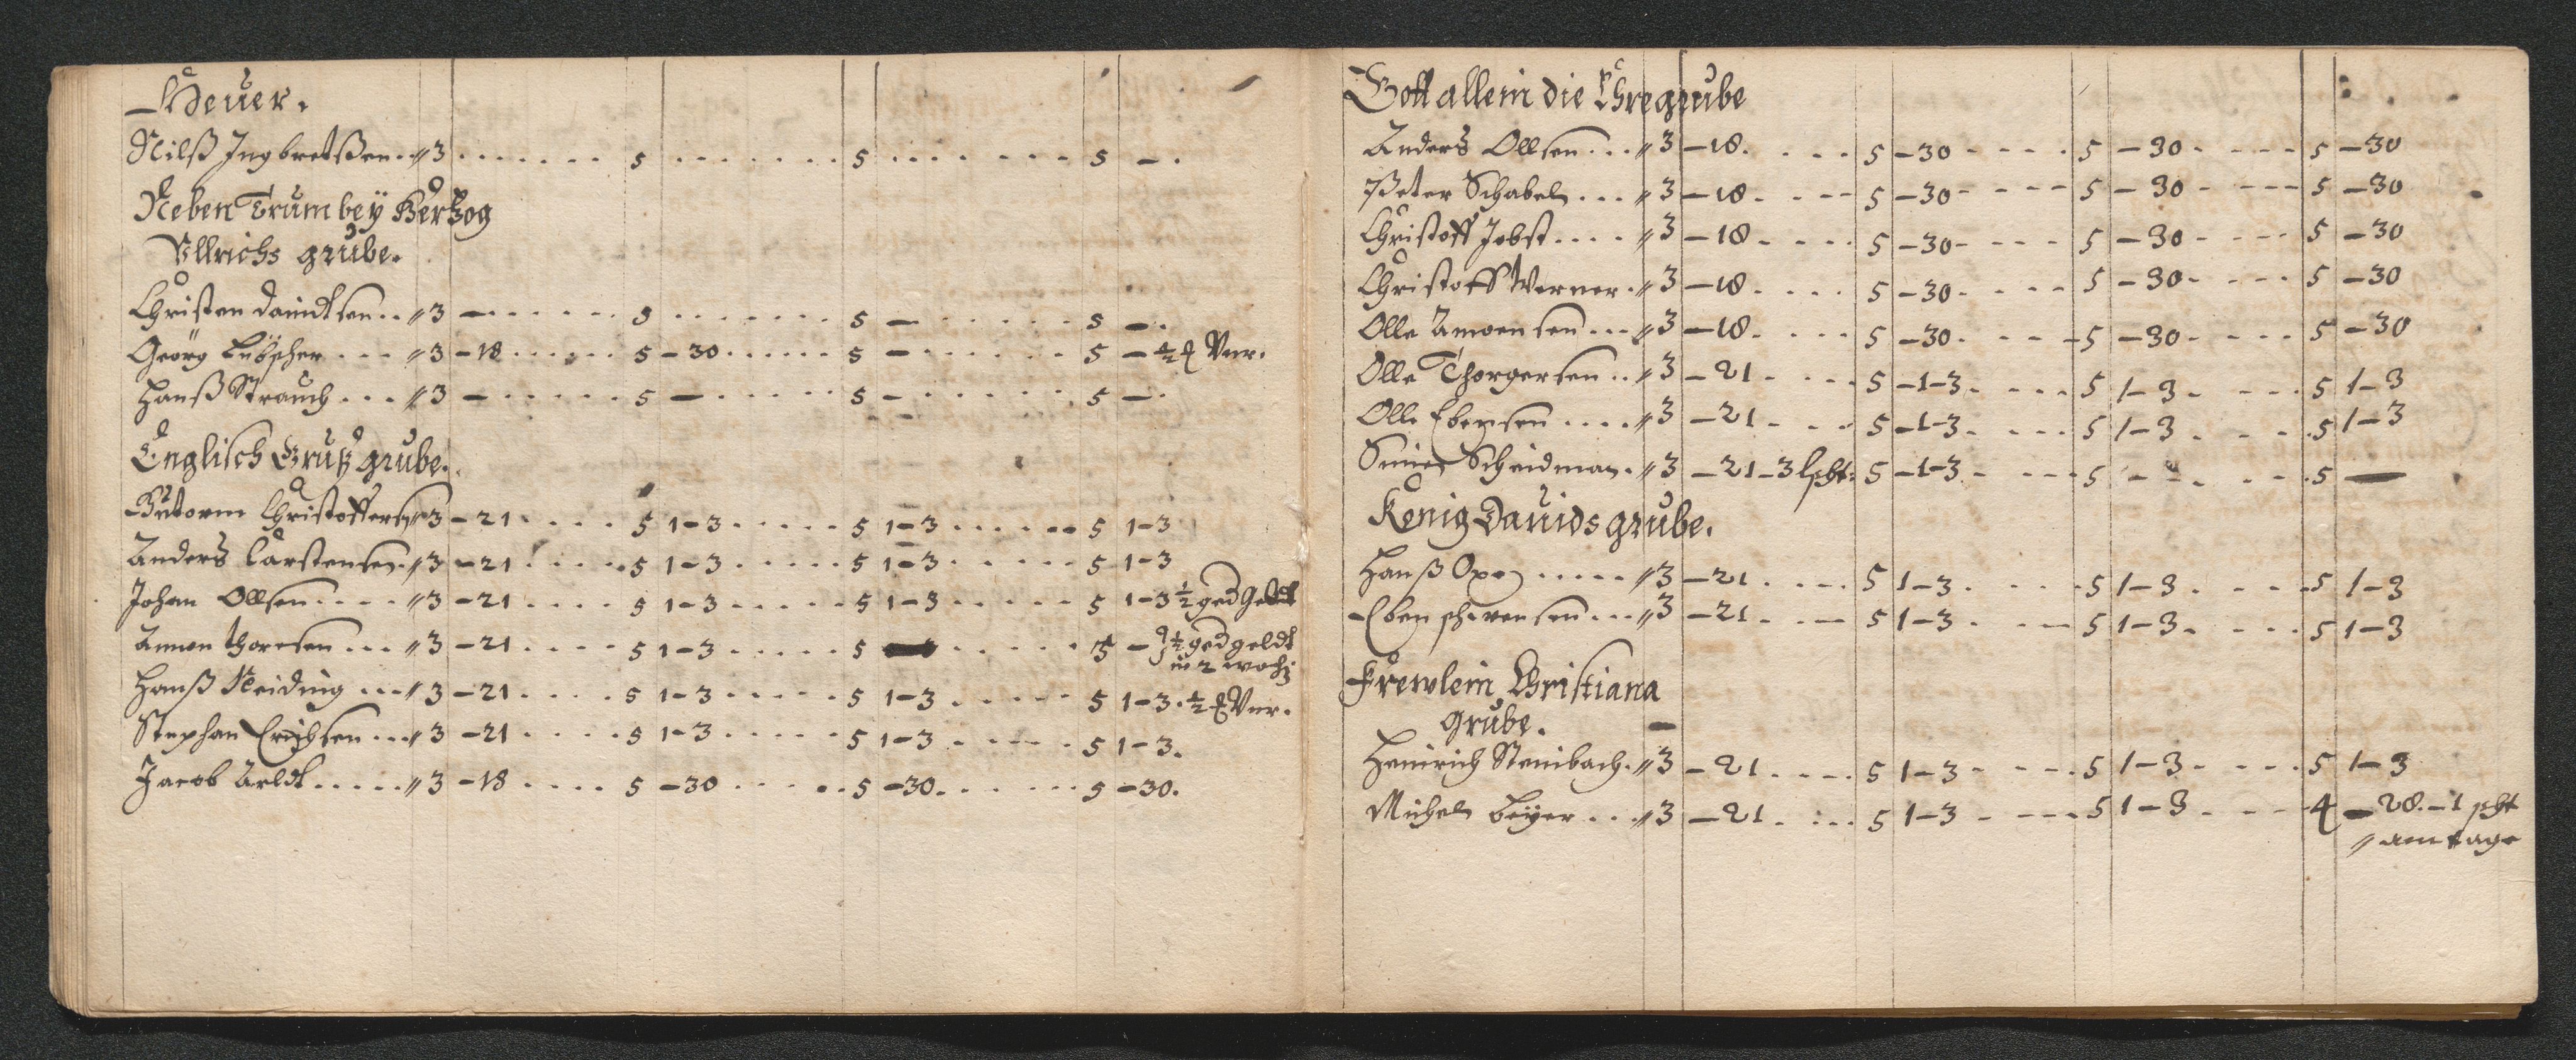 Heuer.
Nilß Ingbretßen .. // 3 ....... 5 ....... 5 ....... 5 - .
Neben Trum beÿ Hertzog
Vllrichs grube.
Christen Dauidtsen .. // 3 - ...... 5 ....... 5 - ...... 5 - .
Georg Lübscher ... // 3 - 18 ...... 5 - 30 ...... 5 - ...... 5 - ½ Vnr.
Hanß Strauch ... // 3 - ...... 5 - ...... 5 - ...... 5 - .
Englisch Gruß grube.
Gutorm Christoffersen // 3 - 21 .... 5 1 - 3 ..... 5 1 - 3 ...... 5 1 - 3
Anders Carstensen . // 3 - 21 ..... 5 1 - 3 ..... 5 1 - 3 ..... 5 1 - 3
Johan Ollsen .... // 3 - 21 .... 5 1 - 3 ..... 5 1 - 3 ..... 5 1 - 3 ½ ged Geldt
Amon thoresen ... // 3 - 21 .... 5 1 - 3 ..... 5 ..... 5 - ½ ged geldt
in 2 woch
Hanß Neiding ... // 3 - 21 .... 5 1 - 3 ..... 5 1 - 3 ..... 5 1 - 3 . ½ Vnr.
Stephan Erichsen ... // 3 - 21 .... 5 1 - 3 ..... 5 1 - 3 ..... 5 1 - 3.
Jacob Arldt ..... // 3 - 18 .... 5 - 30 ..... 5 - 30 ..... 5 - 30.
Gott allein die Ehre grube
Anders Ollsen ... // 3 - 18. ... 5 - 30 - ... 5 - 30 - ... 5 - 30
Peter Schabel ... // 3 - 18. ... 5 - 30 - ... 5 - 30 - ... 5 - 30
Christoff Jobst .... // 3 - 18 ... 5 - 30 - ... 5 - 30 - ... 5 - 30
Christoff Werner . // 3 - 18 .... 5 - 30 - ... 5 - 30 - ... 5 - 30
Olle Amonsen ... // 3 - 18 .... 5 - 30 .... 5 - 30 .... 5 - 30
Olle Thorgersen .. // 3 - 21 .... 5 - 1 - 3 .... 5 1 - 3 .... 5 1 - 3
Olle Ebensen .... // 3 - 21 .... 5 - 1 - 3 .... 5 1 - 3 .... 5 1 - 3
Scheidman . // 3 - 21 - 3 scht: 5 - 1 - 3 .... 5 - .... 5 -
König Dauids grube.
Hanß Ope ..... // 3 - 21 .... 5 1 - 3 .... 5 1 - 3 .... 5 1 - 3
Eben ... // 3 - 21 .... 5 1 - 3 .... 5 1 - 3 .... 5 1 - 3
Frewlein Christiana
grube.
Heinrich Steinbach . // 3 - 21 .... 5 1 - 3 .... 5 1 - 3 .... 5 1 - 3
Michel Beÿer ... // 3 - 21 .... 5 1 - 3 .... 5 1 - 3 .... 4 - 28. - 1 scht
// am tage